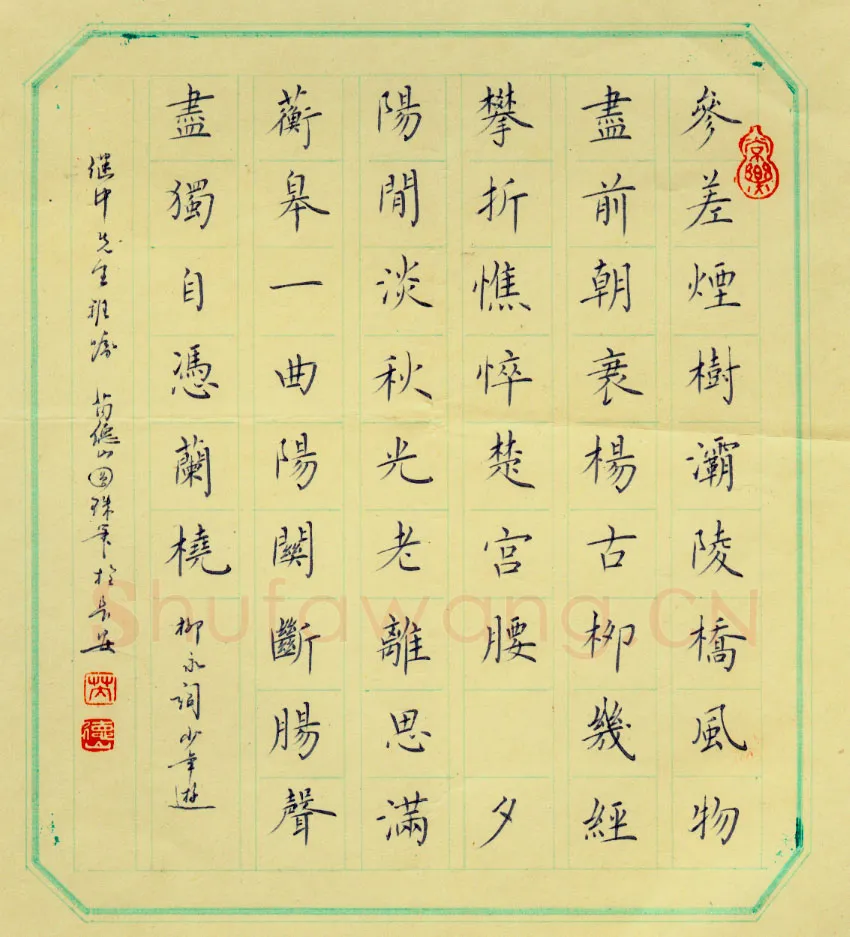 參差煙樹灞陵橋風物
盡前朝衰楊古柳幾經
攀折憔悴楚宮腰　夕
陽閒淡秋光老離思滿
蘅皋一曲陽關斷腸聲
盡獨自憑蘭橈
柳永詞少年遊
继中先生班
德山圆珠笔於長安
常樂
德山
Shufawang.CN